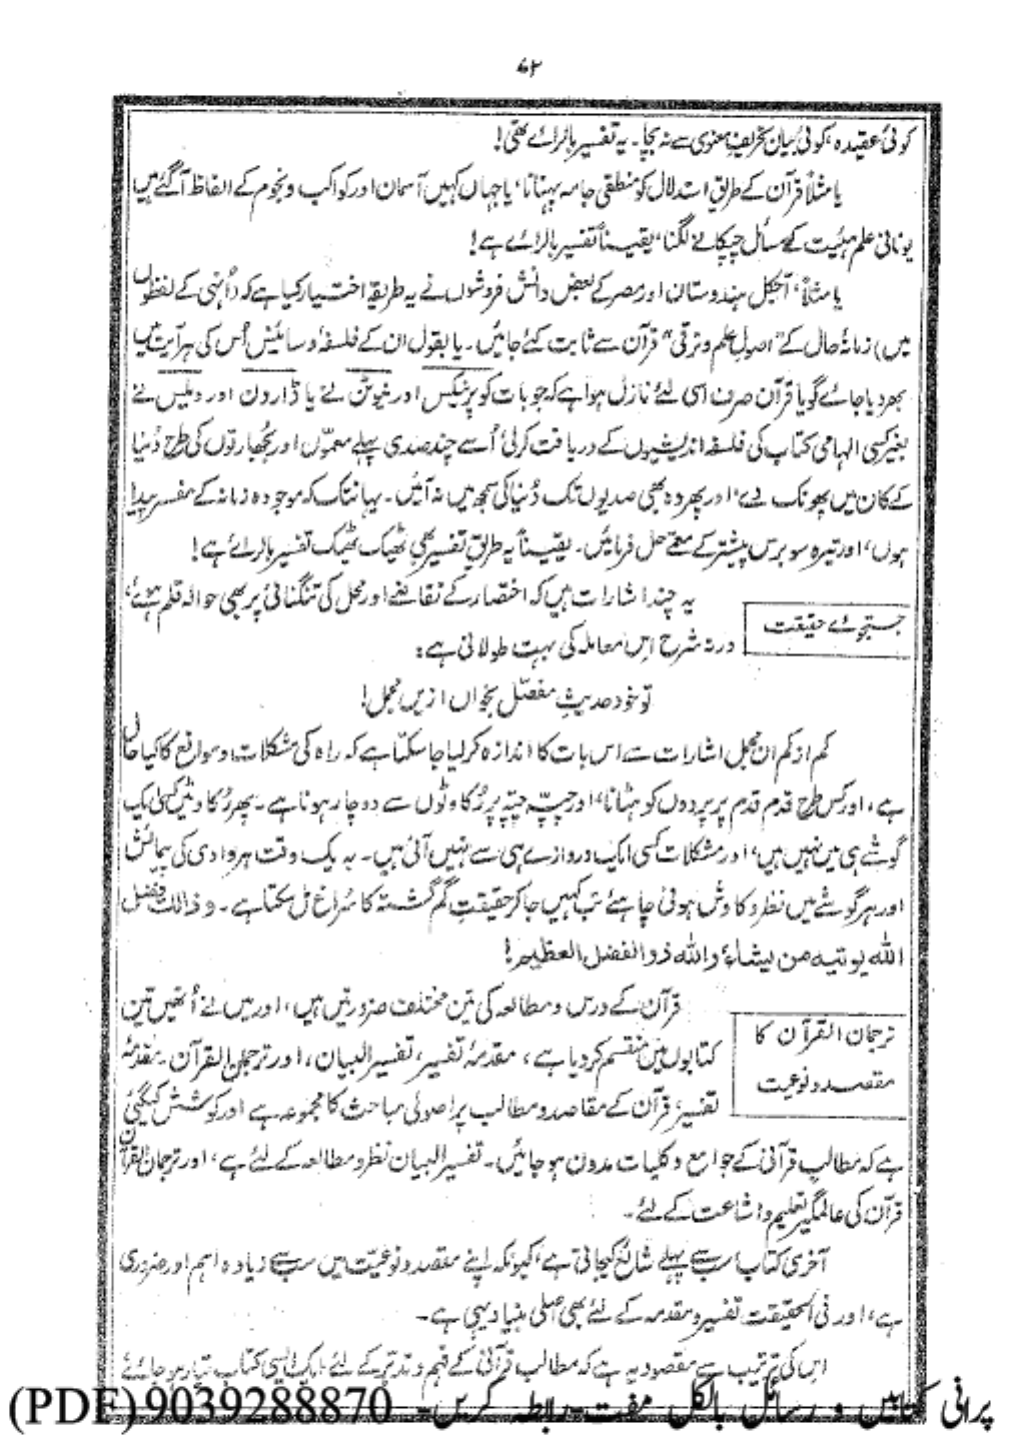 ۴۲
کوئی عقیدہ، کوئی بیان تحریفِ معنوی سے نہ بچا۔ یہ تفسیر بالرائے تھی!
یا مثلاً قرآن کے طریقِ استدلال کو منطقی جامہ پہنانا، یا جہاں کہیں آسمان اور کواکب و نجوم کے الفاظ آگئے ہیں
یونانی علم ہئیت کے مسائل چپکانے لگنا، یقیناً تفسیر بالرائے ہے!
یا مثلاً، آجکل ہندوستان اور مصر کے بعض دانش فروشوں نے یہ طریقہ اختیار کیا ہے کہ (اُنہی کے لفظوں
میں) زمانۂ حال کے "اصولِ علم و ترقی" قرآن سے ثابت کئے جائیں۔ یا بقول ان کے فلسفہ و سائینس اُس کی ہر آیت میں
بھر دیا جائے گویا قرآن صرف اسی لئے نازل ہوا ہے کہ جو بات کوپرنیکس اور نیوٹن نے یا ڈارون اور ویلیس نے
بغیر کسی الہامی کتاب کی فلسفہ اندیشیوں کے دریافت کرلی اُسے چند صدی پہلے معمّوں اور بُجھارتوں کی طرح دُنیا
کے کان میں پھونک دے، اور پھر وہ بھی صدیوں تک دُنیا کی سمجھ میں نہ آئیں۔ یہانتک کہ موجودہ زمانہ کے مفسر پیدا
ہوں، اور تیرہ سو برس پیشتر کے معّمے حل فرمائیں۔ یقیناً یہ طریقِ تفسیر بھی ٹھیک ٹھیک تفسیر بالرائے ہے!
جستجوئے حقیقت
یہ چند اشارات ہیں کہ اختصار کے تقاضے اور محل کی تنگنائی پر بھی حوالہ قلم ہوئے،
ورنہ شرح اس معاملہ کی بہت طولانی ہے:
تو خود حدیثِ مفصّل بخواں ازیں مجمل!
کم از کم ان مجمل اشارات سے اس بات کا اندازہ کرلیا جا سکتا ہے کہ راہ کی مشکلات و موانع کا کیا حال
ہے، اور کس طرح قدم قدم پر پردوں کو ہٹانا، اور چپّہ چپّہ پر رُکاوٹوں سے دوچار ہونا ہے۔ پھر رُکاوٹیں کسی ایک
گوشے ہی میں نہیں ہیں، اور مشکلات کسی ایک دروازے ہی سے نہیں آئی ہیں۔ بہ یک وقت ہر وادی کی پیمائش
اور ہر گوشے میں نظر و کاوش ہونی چاہئے تب کہیں جا کر حقیقتِ گم گشتہ کا سُراغ مل سکتا ہے۔ و ذالک فضل
الله یوتیه من یشاء والله ذو الفضل العظیم!
ترجمان القرآن کا
مقصد و نوعیت
قرآن کے درس و مطالعہ کی تین مختلف ضرورتیں ہیں، اور میں نے اُنھیں تین
کتابوں میں منقسم کردیا ہے، مقدمۂ تفسیر، تفسیر البیان، اور ترجمان القرآن۔ مقدمۂ
تفسیر، قرآن کے مقاصد و مطالب پر اصولی مباحث کا مجموعہ ہے اور کوشش کی گئی
ہے کہ مطالبِ قرآنی کے جوامع و کلیات مدون ہو جائیں۔ تفسیر البیان نظر و مطالعہ کے لئے ہے، اور ترجمان القرآن
قرآن کی عالمگیر تعلیم و اشاعت کے لئے۔
آخری کتاب سب سے پہلے شائع کیجاتی ہے، کیونکہ اپنے مقصد و نوعیّت میں سب سے زیادہ اہم اور ضروری
ہے، اور فی الحقیقت تفسیر و مقدمہ کے لئے بھی اصلی بنیاد یہی ہے۔
اس کی ترتیب سے مقصود یہ ہے کہ مطالبِ قرآنی کے فہم و تدبّر کے لئے ایک ایسی کتاب تیار ہو جائے
پرانی کتابیں و رسائل بالکل مفت۔ رابطہ کریں۔ 9039288870 (PDF)